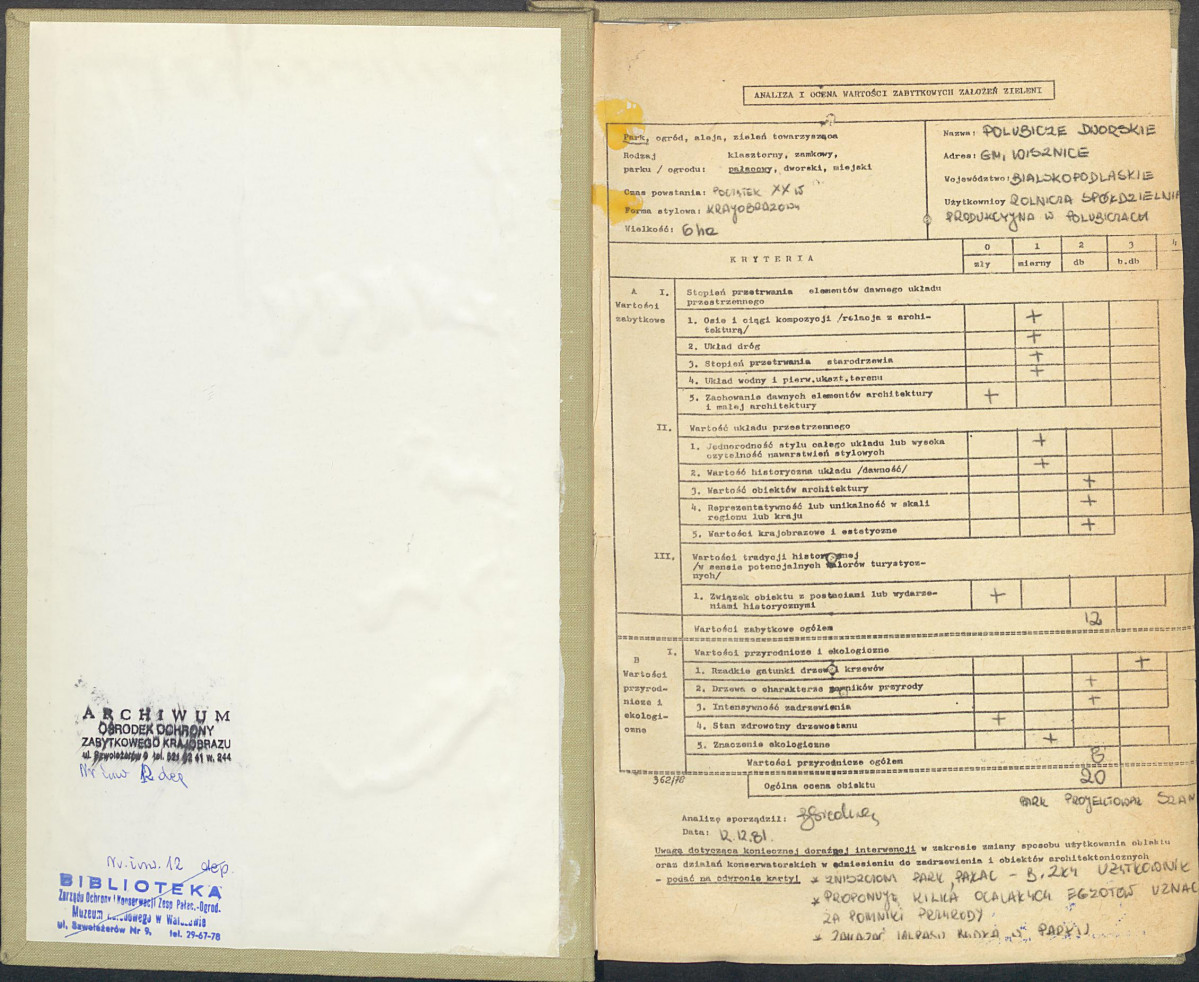 ARCHIWUM
OŚRODEK OCHRONY
ZABYTKOWEGO KRAJOBRAZU
ul. Szwoleżerów 9 tel. 621 62 41 w. 244
Nr inw 12 dep
Nr. inw. 12 dep.
BIBLIOTEKA
Zarządu Ochrony i Konserwacji Zesp. Pałac.-Ogrod.
Muzeum Narodowego w Warszawie
ul. Szwoleżerów Nr 9, tel. 29-67-78
ANALIZA I OCENA WARTOŚCI ZABYTKOWYCH ZAŁOŻEŃ ZIELENI
Park, ogród, aleja, zieleń towarzysząca
Rodzaj klasztorny, zamkowy,
parku / ogrodu: pałacowy, dworski, miejski
Czas powstania: POCZĄTEK XX W
Forma stylowa: KRAJOBRAZOWA
Wielkość: 6 ha
Nazwa: POLUBICZE DWORSKIE
Adres: GM. WISZNICE
Województwo: BIALSKOPODLASKIE
Użytkownicy ROLNICZA SPÓŁDZIELNIA
PRODUKCYJNA W POLUBICZACH
KRYTERIA
0 1 2 3 4
zły mierny db b.db
A I. Stopień przetrwania elementów dawnego układu
przestrzennego
Wartości
zabytkowe
1. Osie i ciągi kompozycji /relacja z archi-
tekturą/ +
2. Układ dróg +
3. Stopień przetrwania starodrzewia +
4. Układ wodny i pierw.ukszt.terenu +
5. Zachowanie dawnych elementów architektury
i małej architektury +
II. Wartość układu przestrzennego
1. Jednorodność stylu całego układu lub wysoka
czytelność nawarstwień stylowych +
2. Wartość historyczna układu /dawność/ +
3. Wartość obiektów architektury +
4. Reprezentatywność lub unikalność w skali
regionu lub kraju +
5. Wartości krajobrazowe i estetyczne +
III. Wartości tradycji historycznej
/w sensie potencjalnych walorów turystycz-
nych/
1. Związek obiektu z postaciami lub wydarze-
niami historycznymi +
Wartości zabytkowe ogółem 12
B I. Wartości przyrodnicze i ekologiczne
Wartości
przyrod-
nicze i
ekologi-
czne
1. Rzadkie gatunki drzew i krzewów +
2. Drzewa o charakterze pomników przyrody +
3. Intensywność zadrzewienia +
4. Stan zdrowotny drzewostanu +
5. Znaczenie ekologiczne +
Wartości przyrodnicze ogółem 8
962/78
Ogólna ocena obiektu 20
PARK PROJEKTOWAŁ SZAN
Analizę sporządził:
Data: 12.12.81.
Uwaga dotycząca koniecznej doraźnej interwencji w zakresie zmiany sposobu użytkowania obiektu
oraz działań konserwatorskich w odniesieniu do zadrzewienia i obiektów architektonicznych
- podać na odwrocie karty! * ZNISZCZONY PARK, PAŁAC - B. ZŁY UŻYTKOWNIK
* PROPONUJĘ KILKA OCALAŁYCH EGZOTÓW UZNAĆ
ZA POMNIKI PRZYRODY
* ZAKAZAĆ WYPASU BYDŁA W PARKU